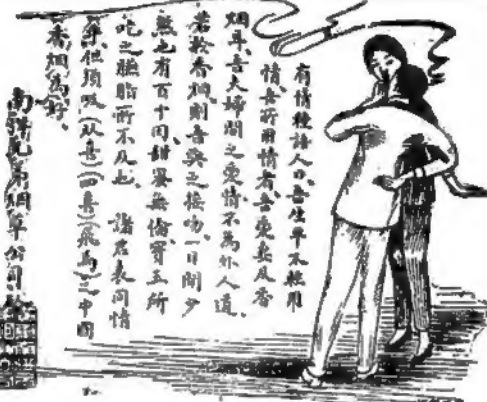 有情種語人曰、吾生平不輕用
情、吾所用情者、吾愛妻及香
烟耳、吾夫婦間之愛情、不為外人道、
若於香烟、則吾與之接吻、一日間少
煞也有百十回、甜蜜無倫、寶玉所
吃之胭脂所不及也、諸君表同情
乎、但須吸(双喜)(四喜)(飛馬)之中國
香烟為好、
南洋兄弟烟草公司